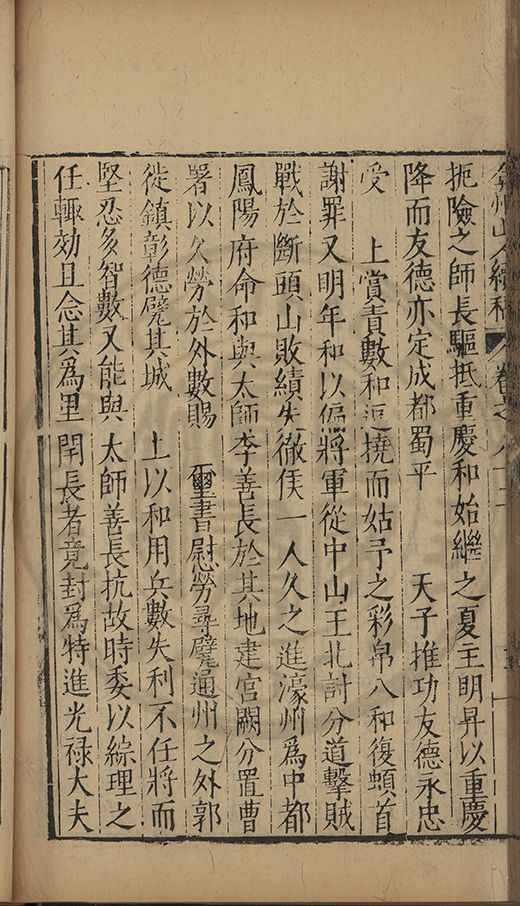 弇州山人續稿 卷之八十三
扼險之師長驅抵重慶和始繼之夏主明昇以重慶
降而友德亦定成都蜀平 天子推功友德永忠
受 上賞責數和逗撓而姑予之彩帛八和復頓首
謝罪又明年和以偏將軍從中山王北討分道擊賊
戰於斷頭山敗績失徹侯一人久之進濠州爲中都
鳳陽府命和與太師李善長於其地建宮闕分置曹
署以久勞於外數賜 璽書慰勞尋甓通州之外郭
徙鎮彰德甓其城 上以和用兵數失利不任將而
堅忍多智數又能與太師善長抗故時委以綜理之
任輙効且念其爲里閈長者竟封爲特進光禄大夫